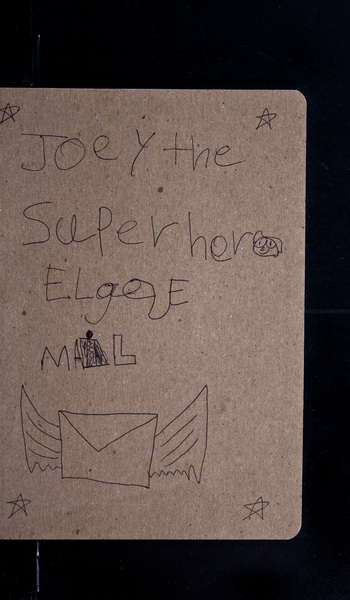 JOey the
Superhero
ELgooE
MAiL